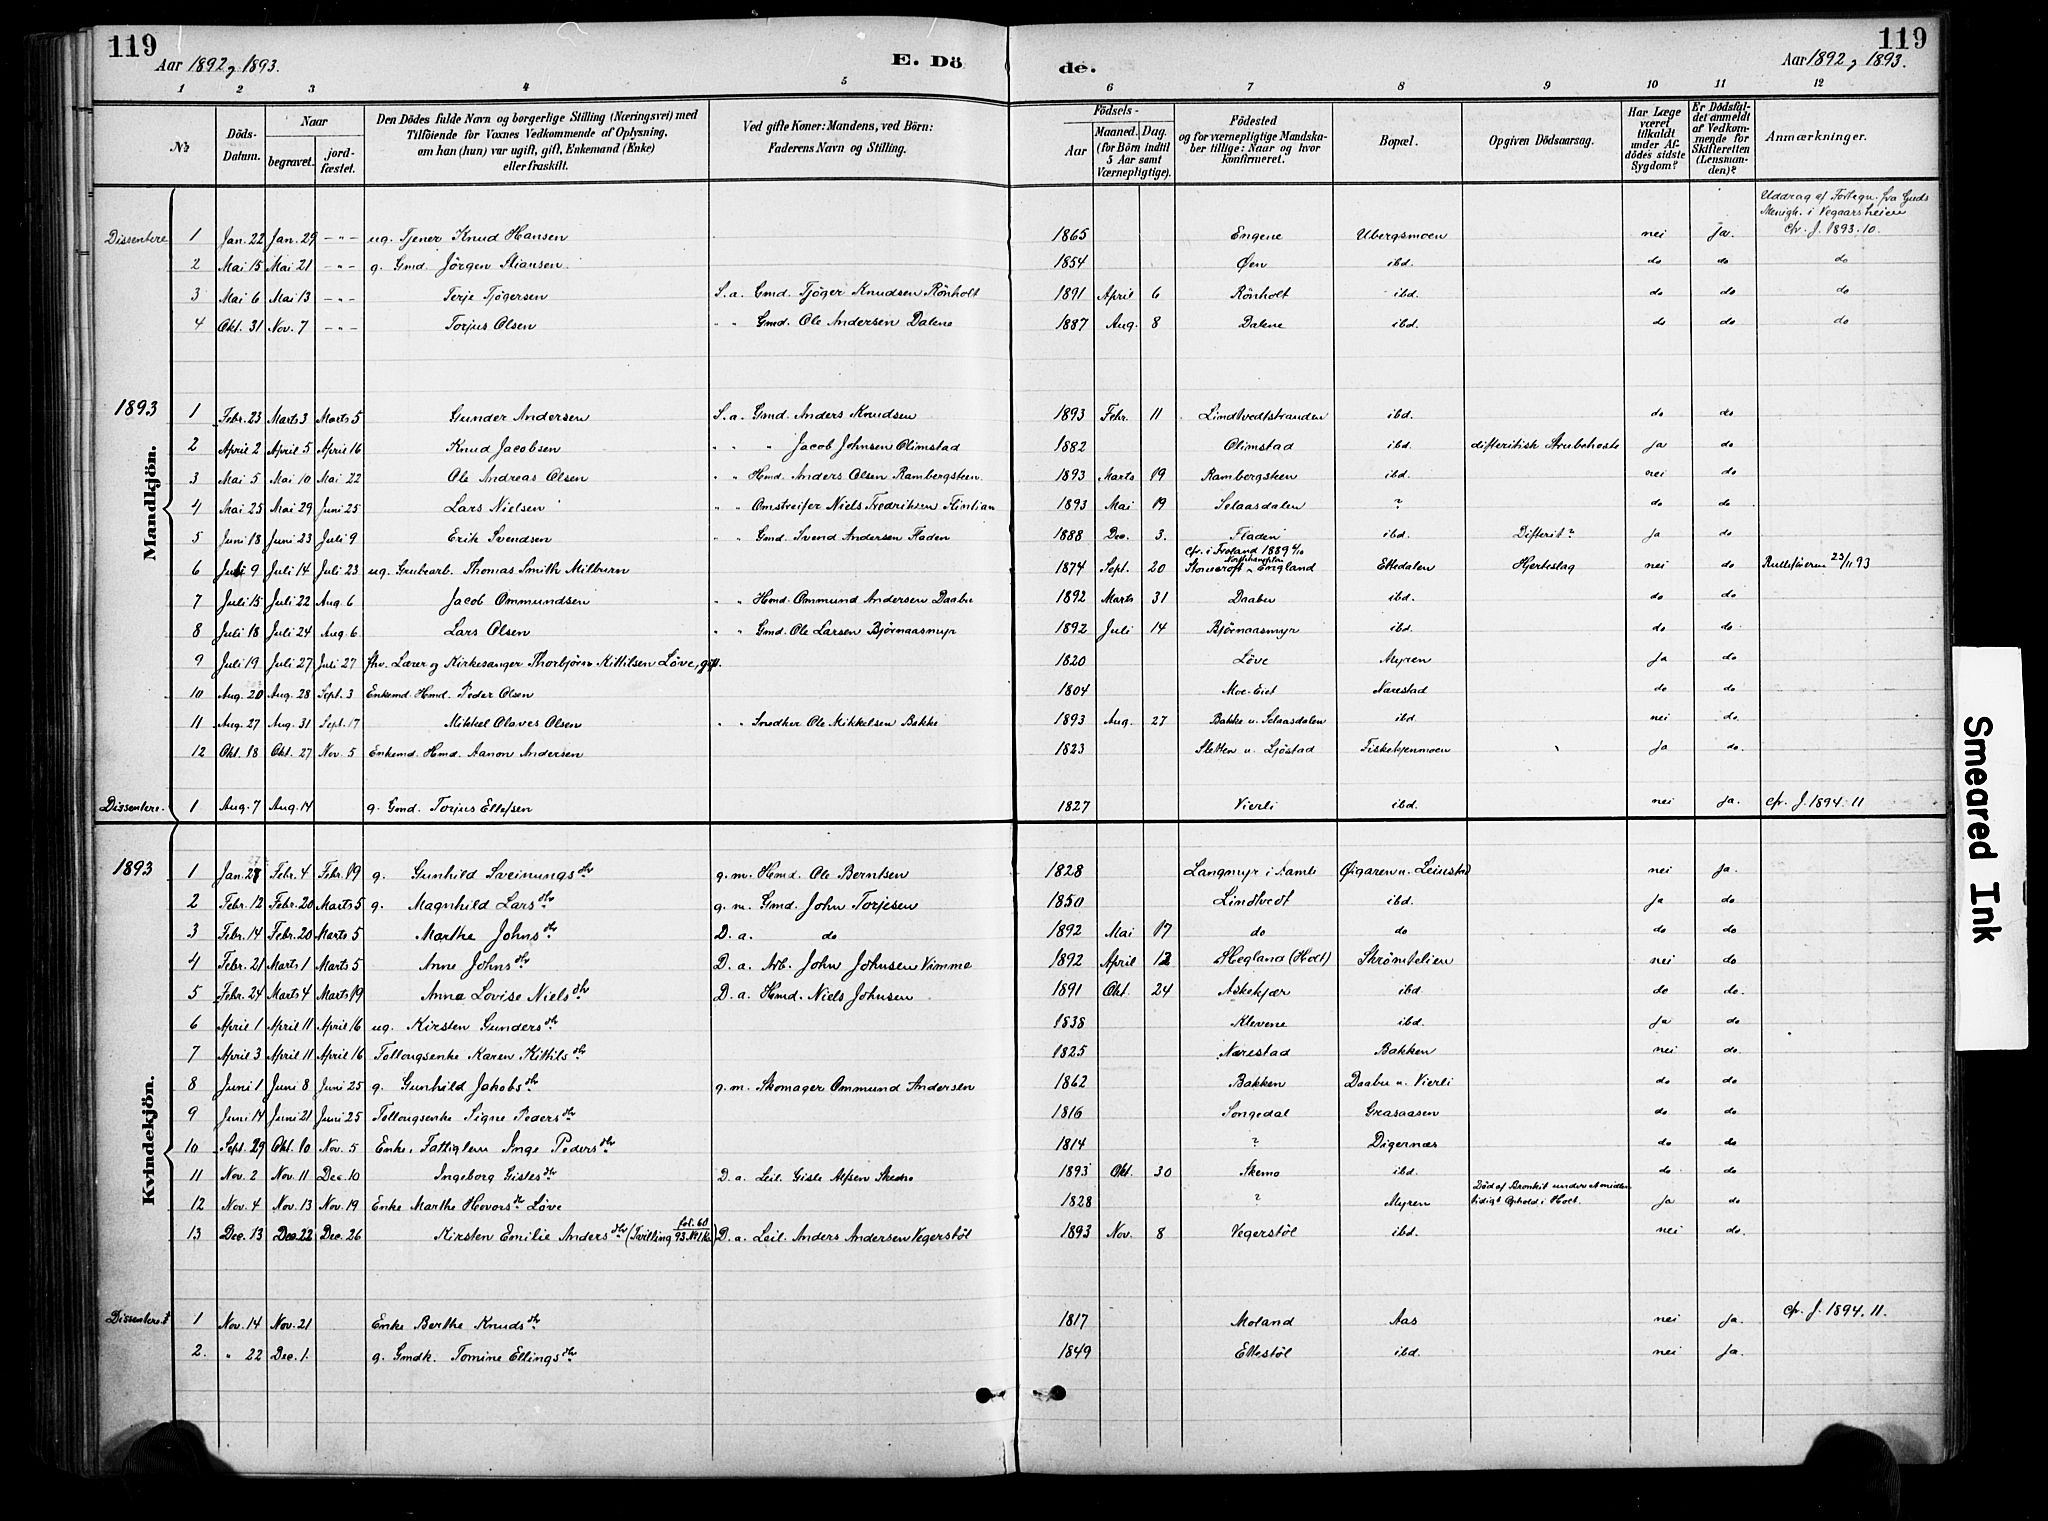 119
Aar 1892 og 1893.
E. Dö
de.
119
Aar 1892 og 1893.
1 2 3 4 5 6 7 8 9 10 11 12
No
Döds-Datum.
Naar
begravet.
jordfæstet.
Den Dödes fulde Navn og borgerlige Stilling (Næringsvei) med
Tilföiende for Voxnes Vedkommende af Oplysning,
om han (hun) var ugift, gift, Enkemand (Enke)
eller fraskilt.
Ved gifte Koner: Mandens, ved Börn:
Faderens Navn og Stilling.
Födsels-
Aar
Maaned. Dag.
(for Börn indtil
5 Aar samt
Værnepligtige).
Födested
og for værnepligtige Mandskaber tillige: Naar og hvor
konfirmeret.
Bopæl.
Opgiven Dödsaarsag.
Har Læge
været
tilkaldt
under Afdödes sidste
Sygdom?
Er Dödsfaldet anmeldt
af Vedkommende for
Skifteretten
(Lensmanden)?
Anmærkninger.
Uddrag af Fortegn. fra Guds
Menigh. i Vegaarsheien
Dissentere 1 Jan. 22 Jan. 29 -"- ug. Tjener Knud Hansen 1865 Engene Ubergsmoen nei ja. cfr. J. 1893.10.
2 Mai 15 Mai 21 -"- g. Gmd. Jörgen Stiansen. 1854 Øen ibd. do do do
3 Mai 6 Mai 13 -"- Terje Tjögersen S. a. Gmd. Tjöger Knudsen Rönholt 1891 April 6 Rönholt ibd. do do do
4 Okt. 31 Nov. 7 -"- Torjus Olsen " " Gmd. Ole Andersen Dalene 1887 Aug. 8 Dalene ibd. do do do
Mandkjön.
1893 1 Febr. 23 Marts 3 Marts 5 Gunder Andersen S. a. Gmd. Anders Knudsen 1893 Febr. 11 Lindtvedtstranden ibd. do do
2 April 2 April 5 April 16 Knud Jacobsen " " " Jacob Johnsen Olimstad 1882 Olimstad ibd. difteritisk Strubehoste ja do
3 Mai 5 Mai 10 Mai 22 Ole Andreas Olsen " " Hmd. Anders Olsen Rambergsteen. 1893 Marts 19 Rambergsteen ibd. nei do
4 Mai 25 Mai 29 Juni 25 Lars Nielsen " " Omstreifer Niels Fredriksen Flintian 1893 Mai 19 Selaasdalen ? do do
5 Juni 18 Juni 23 Juli 9 Erik Svendsen " " Gmd. Svend Andersen Fladen 1888 Dec. 3. Fladen ibd. Difterit? ja do
cfr. i Froland 1889 4/10
6 Juli 9 Juli 14 Juli 23 ug. Grubearb. Thomas Smith Milburn 1874 Sept. 20 Stonecroft England Ettedalen Hjerteslag nei do Rulleföreren 23/11 93
7 Juli 15 Juli 22 Aug. 6 Jacob Ommundsen " " Hmd. Ommund Andersen Daabu 1892 Marts 31 Daabu ibd. do do
8 Juli 18 Juli 24 Aug. 6 Lars Olsen " " Gmd. Ole Larsen Bjørnaasmyr 1892 Juli 14 Bjørnaasmyr ibd. do do
9 Juli 19 Juli 27 Juli 27 fhv. Lærer og Kirkesanger Thorbjørn Kittilsen Löve, gift. 1820 Löve Myren ja do
10 Aug. 20 Aug. 28 Sept. 3 Enkemd. Hmd. Peder Olsen 1804 Moe-Eiet Narestad do do
11 Aug. 27 Aug. 31 Sept. 17 Mikkel Olaves Olsen " " Snedker Ole Mikkelsen Bakke 1893 Aug. 27 Bakke u. Selaasdalen ibd. nei do.
12 Okt. 18 Okt. 27 Nov. 5 Enkemd. Hmd. Aanon Andersen 1823 Sletten u. Ljöstad Fisketjenmoen ja do.
Dissentere. 1 Aug. 7 Aug. 14 g. Gmd. Torjus Ellefsen 1827 Vierli ibd. nei ja. cfr. J. 1894. 11
Kvindekjön.
1893 1 Jan. 28 Febr. 4 Febr. 19 g. Gunhild Sveinungsdtr g. m. Hmd. Ole Berntsen 1828 Langmyr i Aamli Øigaren u. Leinstad nei ja.
2 Febr. 12 Febr. 20 Marts 5 g. Magnhild Larsdtr g. m. Gmd. John Torjesen 1850 Lindtvedt ibd. ja do
3 Febr. 14 Febr. 20 Marts 5 Marthe Johnsdtr D. a. do 1892 Mai 17 do do do do
4 Febr. 21 Marts 1 Marts 5 Anne Johnsdtr D. a. Arb. John Johnsen Vimme 1892 April 12 Hegland (Holt) Skrømtelien nei do
5 Febr. 24 Marts 4 Marts 19 Anna Lovise Nielsdtr D. a. Hmd. Niels Johnsen 1891 Okt. 24 Askekjær ibd do do.
6 April 1 April 11 April 16 ug. Kirsten Gundersdtr 1838 Klevene ibd. ja do
7 April 3 April 11 April 16 Follougsenke Karen Kittilsdtr 1825 Nærestad Bakken nei do.
8 Juni 1 Juni 8 Juni 25 g. Gunhild Jakobsdtr g. m. Skomager Ommund Andersen 1862 Bakken Daabu u. Vierli do do
9 Juni 14 Juni 21 Juni 25 Follougsenke Signe Pedersdtr 1816 Songedal Grasaasen do do
10 Sept. 29 Okt. 10 Nov. 5 Enke, Fattiglem Inge Pedersdtr 1814 ? Digernæs do do
11 Nov. 2 Nov. 11 Dec. 10 Ingeborg Gislesdtr D. a. Leil. Gisle Alfsen Skemo 1893 Okt. 30 Skemo ibd. do do
12 Nov. 4 Nov. 13 Nov. 19 Enke Marthe Hovorsdtr Löve 1828 ? Myren Död af Bronkit under et midlertidigt Ophold i Holt. ja do
13 Dec. 13 Dec. 22 Dec. 26 Kirsten Emilie Andersdtr (Tvilling fol. 60 93 No 1 Kv.) D. a. Leil. Anders Andersen Vegerstöl 1893 Nov. 8 Vegerstöl ibd. nei do.
Dissentere 1 Nov. 14 Nov. 21 Enke Berthe Knudsdtr 1817 Moland Aas nei ja. cfr. J. 1894. 11.
2. " 22 Dec. 1. g. Gmdk. Tomine Ellingsdtr 1849 Ettestöl ibd. nei ja.
Smeared Ink